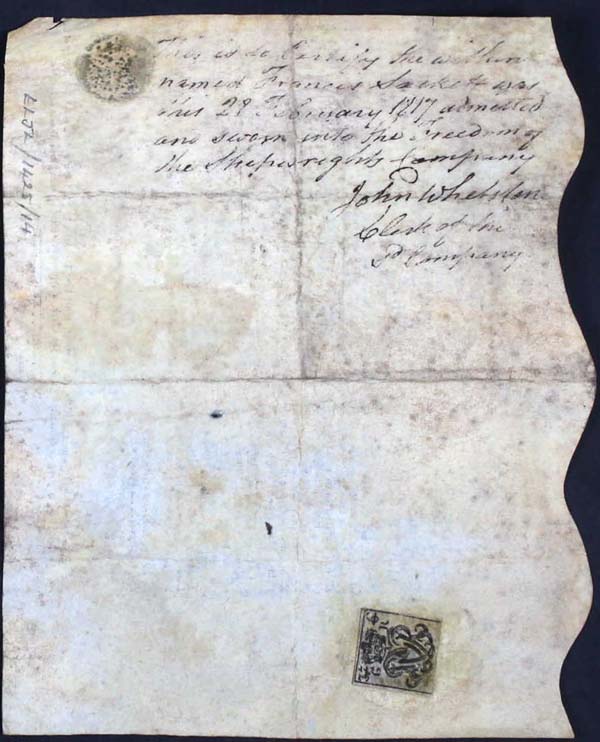 This is to Certify the within
named Francis Sackett was
this 28 February 1817 admitted
and sworn into the Freedom of
the Shipwrights Company
John Whetston
Clerk of the
Sd Company